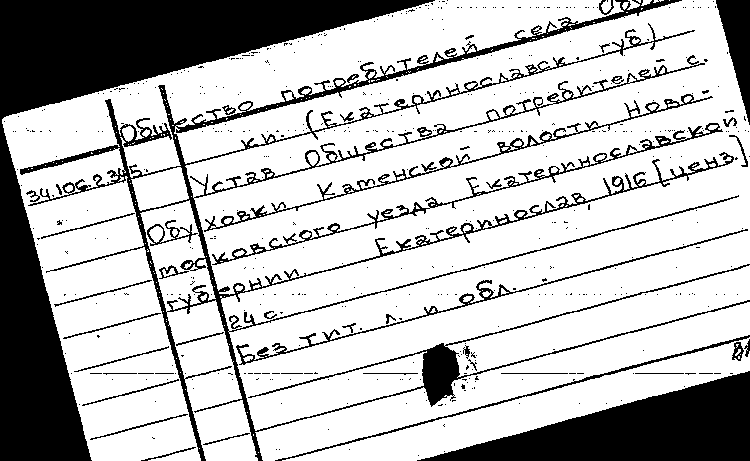 Общество потребителей села Обу
ки. (Екатеринославск. губ).
34.106.2.345. Устав Общества потребителей с.
Обуховки, Каменской волости, Ново-
московского уезда, Екатеринославской
губернии. Екатеринослав, 1916 [ценз.]
24 с.
Без тит. л. и обл.